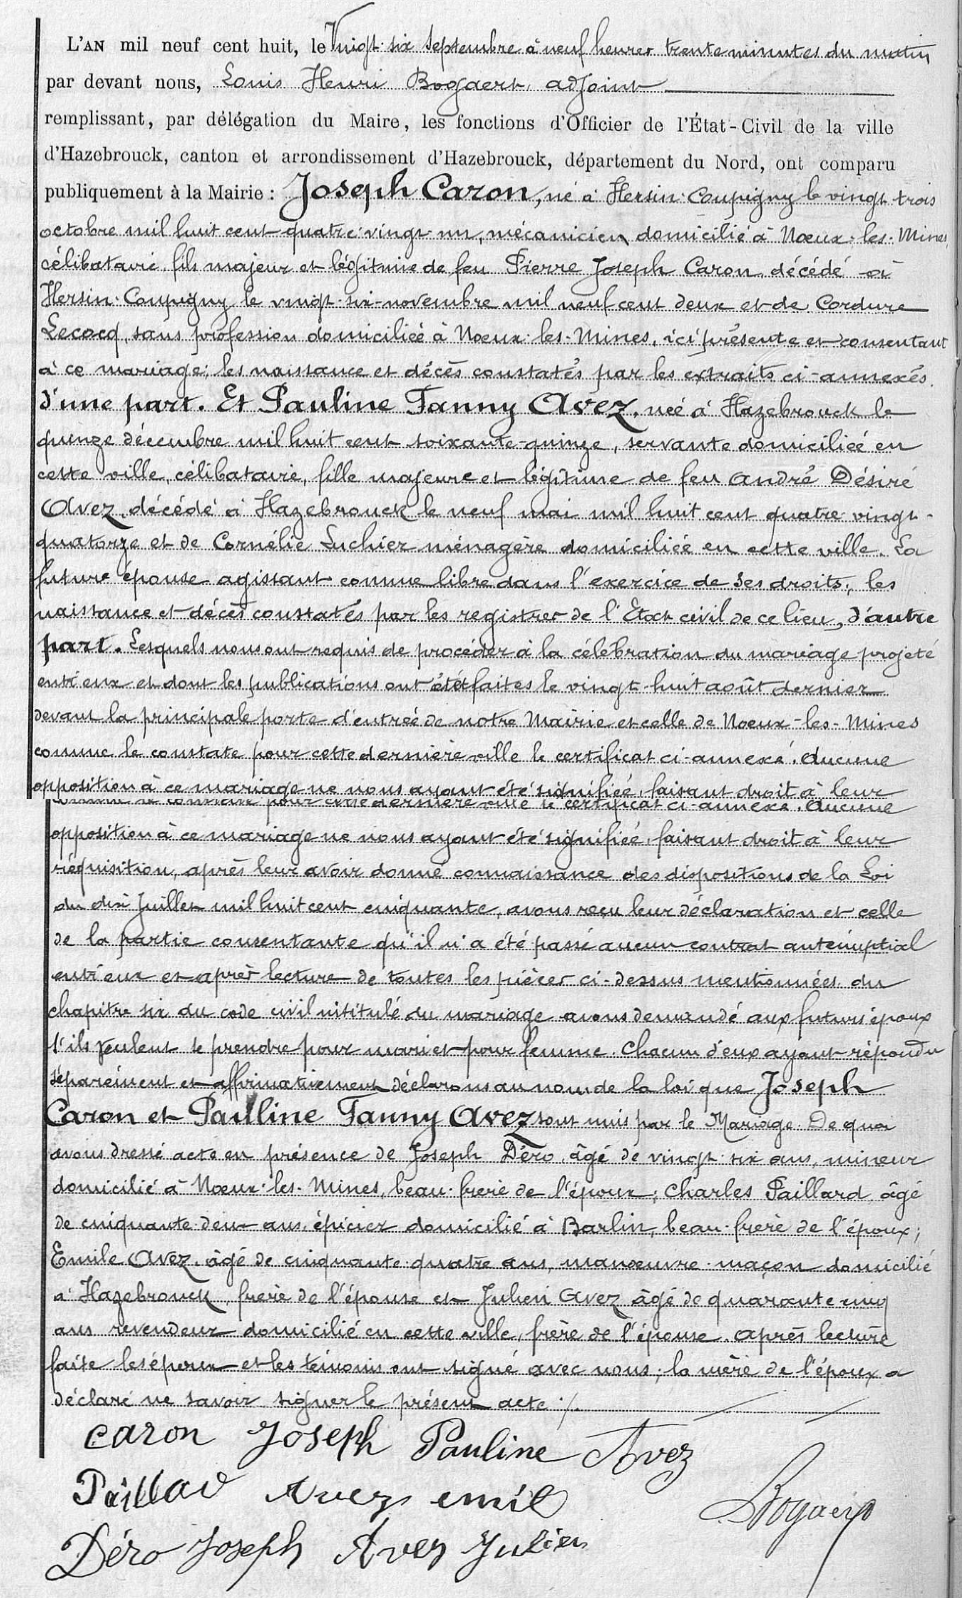 L'AN mil neuf cent huit, le Vingt-six septembre à neuf heures trente minutes du matin
par devant nous, Louis Henri Bogaert, adjoint
remplissant, par délégation du Maire, les fonctions d'Officier de l'État-Civil de la ville
d'Hazebrouck, canton et arrondissement d'Hazebrouck, département du Nord, ont comparu
publiquement à la Mairie : Joseph Caron, né à Hersin-Coupigny le vingt trois
octobre mil huit cent quatre-vingt-un, mécanicien, domicilié à Nœux-les-Mines,
célibataire, fils majeur et légitime de feu Pierre Joseph Caron décédé à
Hersin-Coupigny le vingt-six novembre mil neuf cent deux et de Cordure
Lecocq, sans profession domiciliée à Nœux-les-Mines, ici présente et consentant
à ce mariage; les naissance et décès constatés par les extraits ci-annexés.
d'une part. Et Pauline Fanny Avez, née à Hazebrouck le
quinze décembre mil huit cent soixante-quinze, servante domiciliée en
cette ville, célibataire, fille majeure et légitime de feu André Désiré
Avez, décédé à Hazebrouck le neuf mai mil huit cent quatre-vingt-
quatorze et de Cornélie Luchier ménagère domiciliée en cette ville. La
future épouse agissant comme libre dans l'exercice de ses droits; les
naissance et décès constatés par les registres de l'État civil de ce lieu, d'autre
part. Lesquels nous ont requis de procéder à la célébration du mariage projeté
entr'eux et dont les publications ont été faites le vingt-huit août dernier
devant la principale porte d'entrée de notre Mairie et celle de Nœux-les-Mines
comme le constate pour cette dernière ville le certificat ci-annexé. Aucune
opposition à ce mariage ne nous ayant été signifiée, faisant droit à leur
comme le constate pour cette dernière ville le certificat ci-annexé. Aucune
opposition à ce mariage ne nous ayant été signifiée, faisant droit à leur
réquisition, après leur avoir donné connaissance des dispositions de la Loi
du dix Juillet mil huit cent cinquante, avons reçu leur déclaration et celle
de la partie consentante qu'il n'a été passé aucun contrat anténuptial
entr'eux et après lecture de toutes les pièces ci-dessus mentionnées du
chapitre six du code civil intitulé du mariage avons demandé aux futurs époux
s'ils veulent se prendre pour mari et pour femme. Chacun d'eux ayant répondu
séparément et affirmativement déclarons au nom de la loi que Joseph
Caron et Pauline Fanny Avez sont unis par le Mariage. De quoi
avons dressé acte en présence de Joseph Déro, âgé de vingt-six ans, mineur
domicilié à Nœux-les-Mines, beau-frère de l'époux; Charles Paillard, âgé
de cinquante-deux ans, épicier domicilié à Barlin, beau-frère de l'époux;
Emile Avez, âgé de cinquante-quatre ans, manœuvre-maçon domicilié
à Hazebrouck, frère de l'épouse et Julien Avez âgé de quarante cinq
ans revendeur domicilié en cette ville, frère de l'épouse. Après lecture
faite les époux et les témoins ont signé avec nous; la mère de l'époux a
déclaré ne savoir signer le présent acte ./.
Caron Joseph Pauline Avez
Paillad Avez emil
Bogaert
Déro Joseph Avez Julien